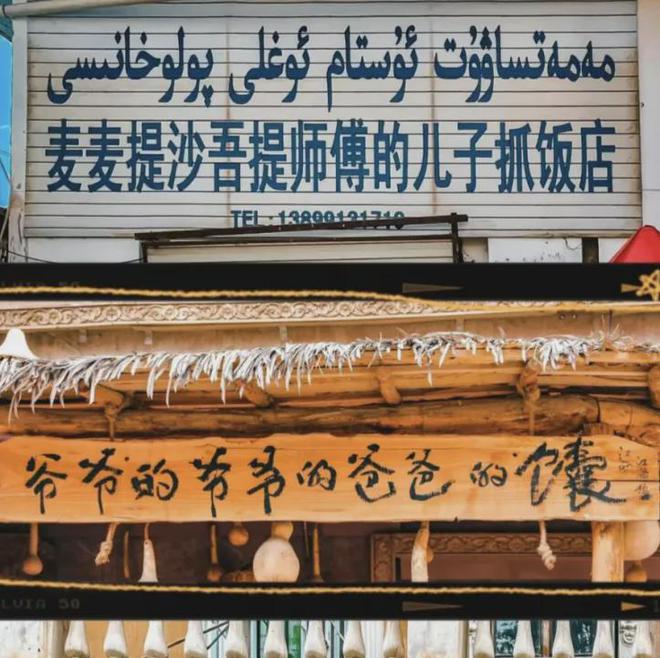 مەمەتساۋۇت ئۇستام ئوغلى پولوخانىسى
麦麦提沙吾提师傅的儿子抓饭店
TEL:13899131710
爷爷的爷爷的爸爸的馕
LVIA 50